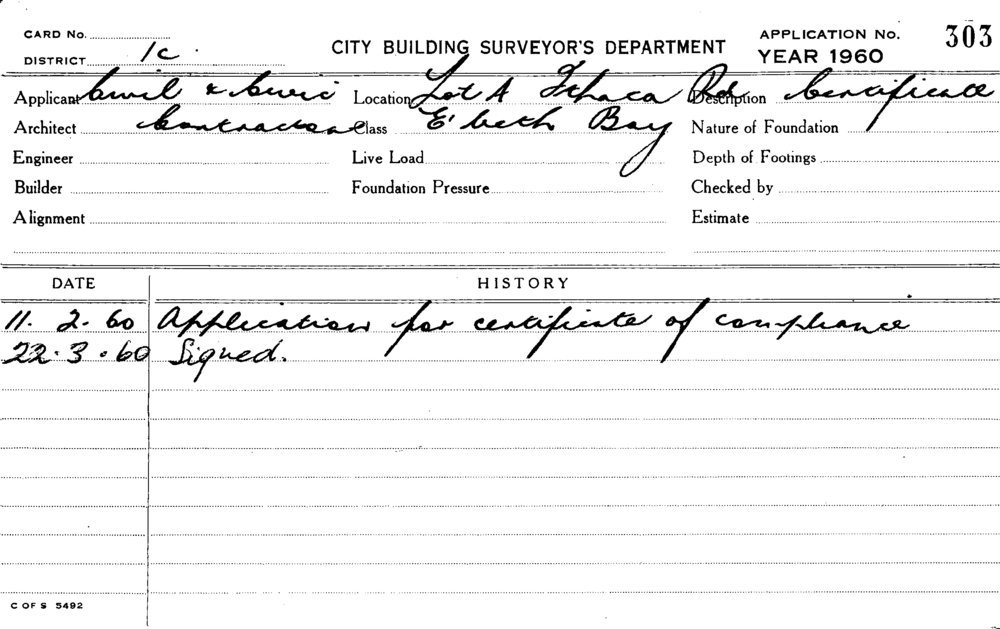 CARD No. APPLICATION No. 303
DISTRICT 1c. CITY BUILDING SURVEYOR'S DEPARTMENT YEAR 1960
Applicant Civil & Civic Location Lot A Ithaca Rd Description Certificate
Architect Contractors Class E'beth Bay Nature of Foundation
Engineer Live Load Depth of Footings
Builder Foundation Pressure Checked by
Alignment Estimate
DATE HISTORY
11. 2. 60 Application for certificate of compliance
22. 3. 60 Signed.
C OF S 5492